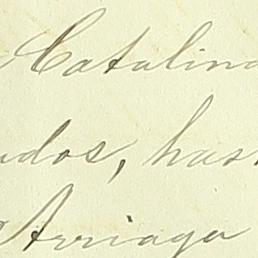 Catalina
udos, has
Arriaga